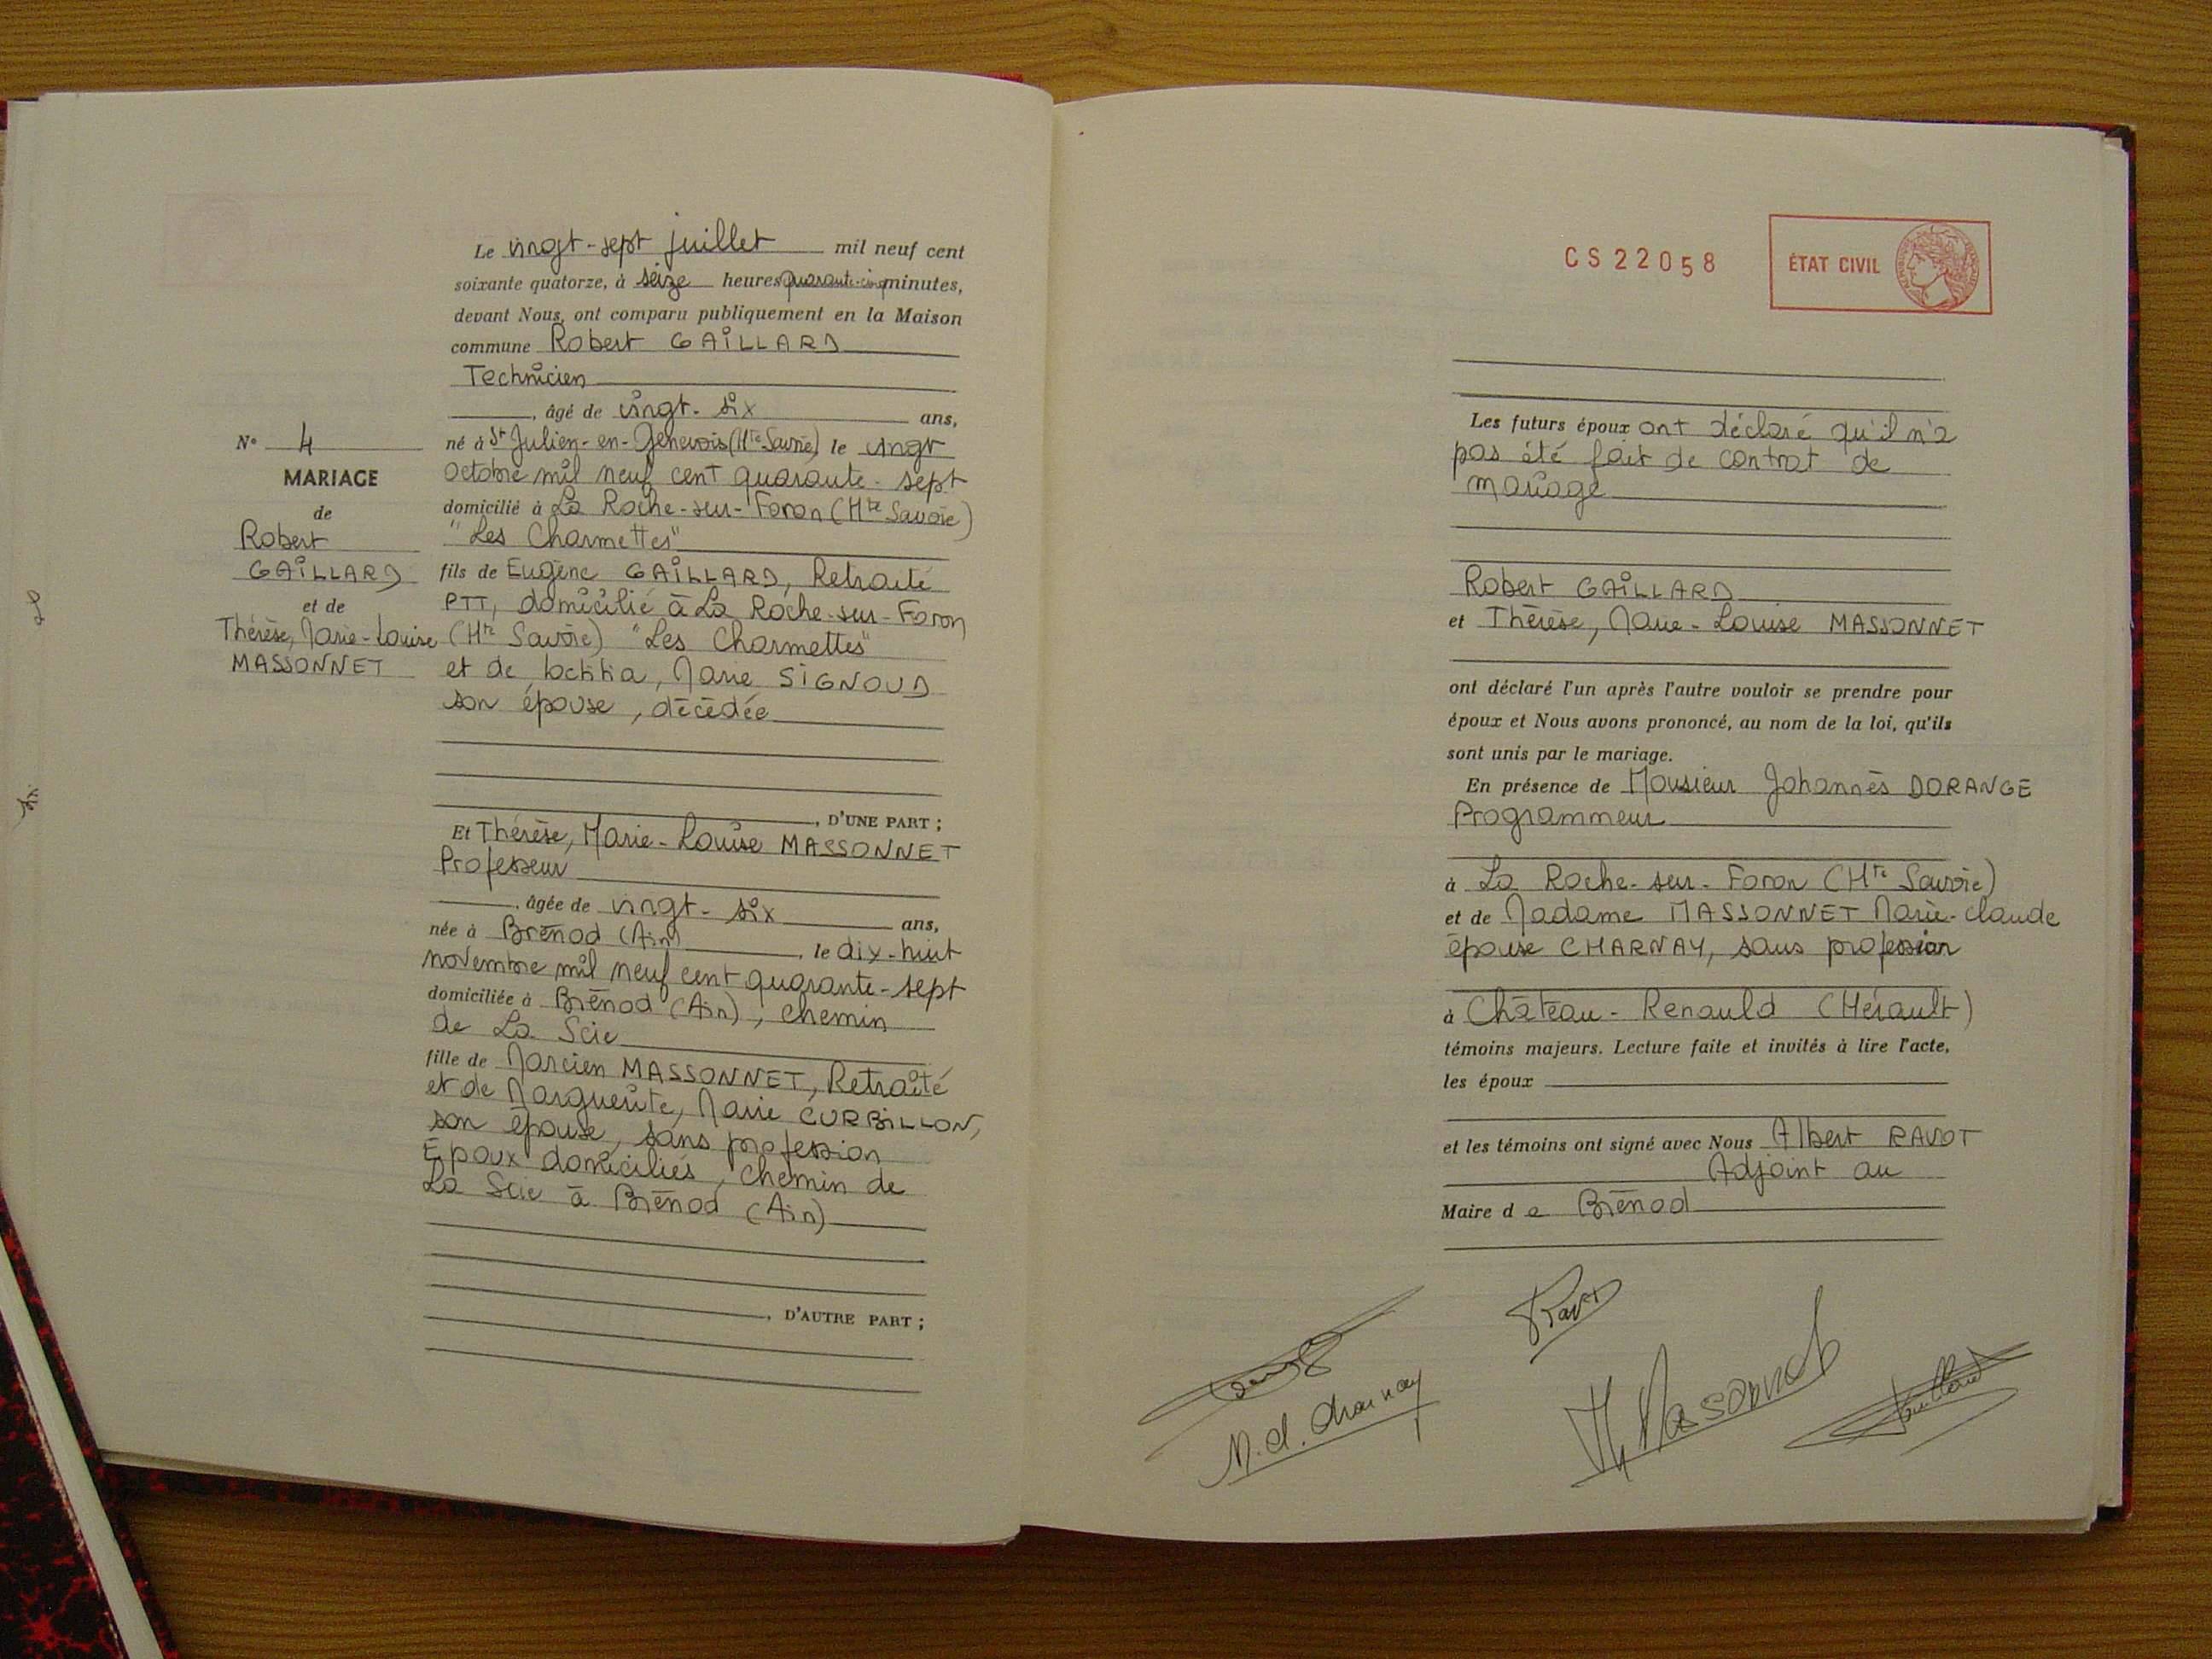 Le vingt-sept juillet mil neuf cent
soixante quatorze, à seize heures quarante-cinq minutes,
devant Nous, ont comparu publiquement en la Maison
commune Robert GAILLARD
Technicien
, âgé de vingt-six ans,
né à St Julien-en-Genevois (Hte Savoie) le vingt
octobre mil neuf cent quarante-sept
domicilié à La Roche-sur-Foron (Hte Savoie)
"Les Charmettes"
fils de Eugène GAILLARD, Retraité
PTT, domicilié à La Roche-sur-Foron
(Hte Savoie) "Les Charmettes"
et de Laetitia, Marie SIGNOUD
son épouse, décédée
, D'UNE PART ;
Et Thérèse, Marie-Louise MASSONNET
Professeur
, âgée de vingt-six ans,
née à Brénod (Ain), le dix-huit
novembre mil neuf cent quarante-sept
domiciliée à Brénod (Ain), chemin
de La Scie
fille de Marcien MASSONNET, Retraité
et de Marguerite, Marie CURBILLON,
son épouse, sans profession
Epoux domiciliés, chemin de
La Scie à Brénod (Ain)
, D'AUTRE PART ;
N° 4
MARIAGE
de
Robert
GAILLARD
et de
Thérèse, Marie-Louise
MASSONNET
CS22058
ÉTAT CIVIL
Les futurs époux ont déclaré qu'il n'a
pas été fait de contrat de
mariage
Robert GAILLARD
et Thérèse, Marie-Louise MASSONNET
ont déclaré l'un après l'autre vouloir se prendre pour
époux et Nous avons prononcé, au nom de la loi, qu'ils
sont unis par le mariage.
En présence de Monsieur Johannès DORANGE
Programmeur
à La Roche-sur-Foron (Hte Savoie)
et de Madame MASSONNET Marie-Claude
épouse CHARNAY, sans profession
à Château-Renauld (Hérault)
témoins majeurs. Lecture faite et invités à lire l'acte,
les époux
et les témoins ont signé avec Nous Albert RAVOT
Adjoint au
Maire de Brénod
Ravot
M.Cl. Charnay
Th Massonnet
Gaillard